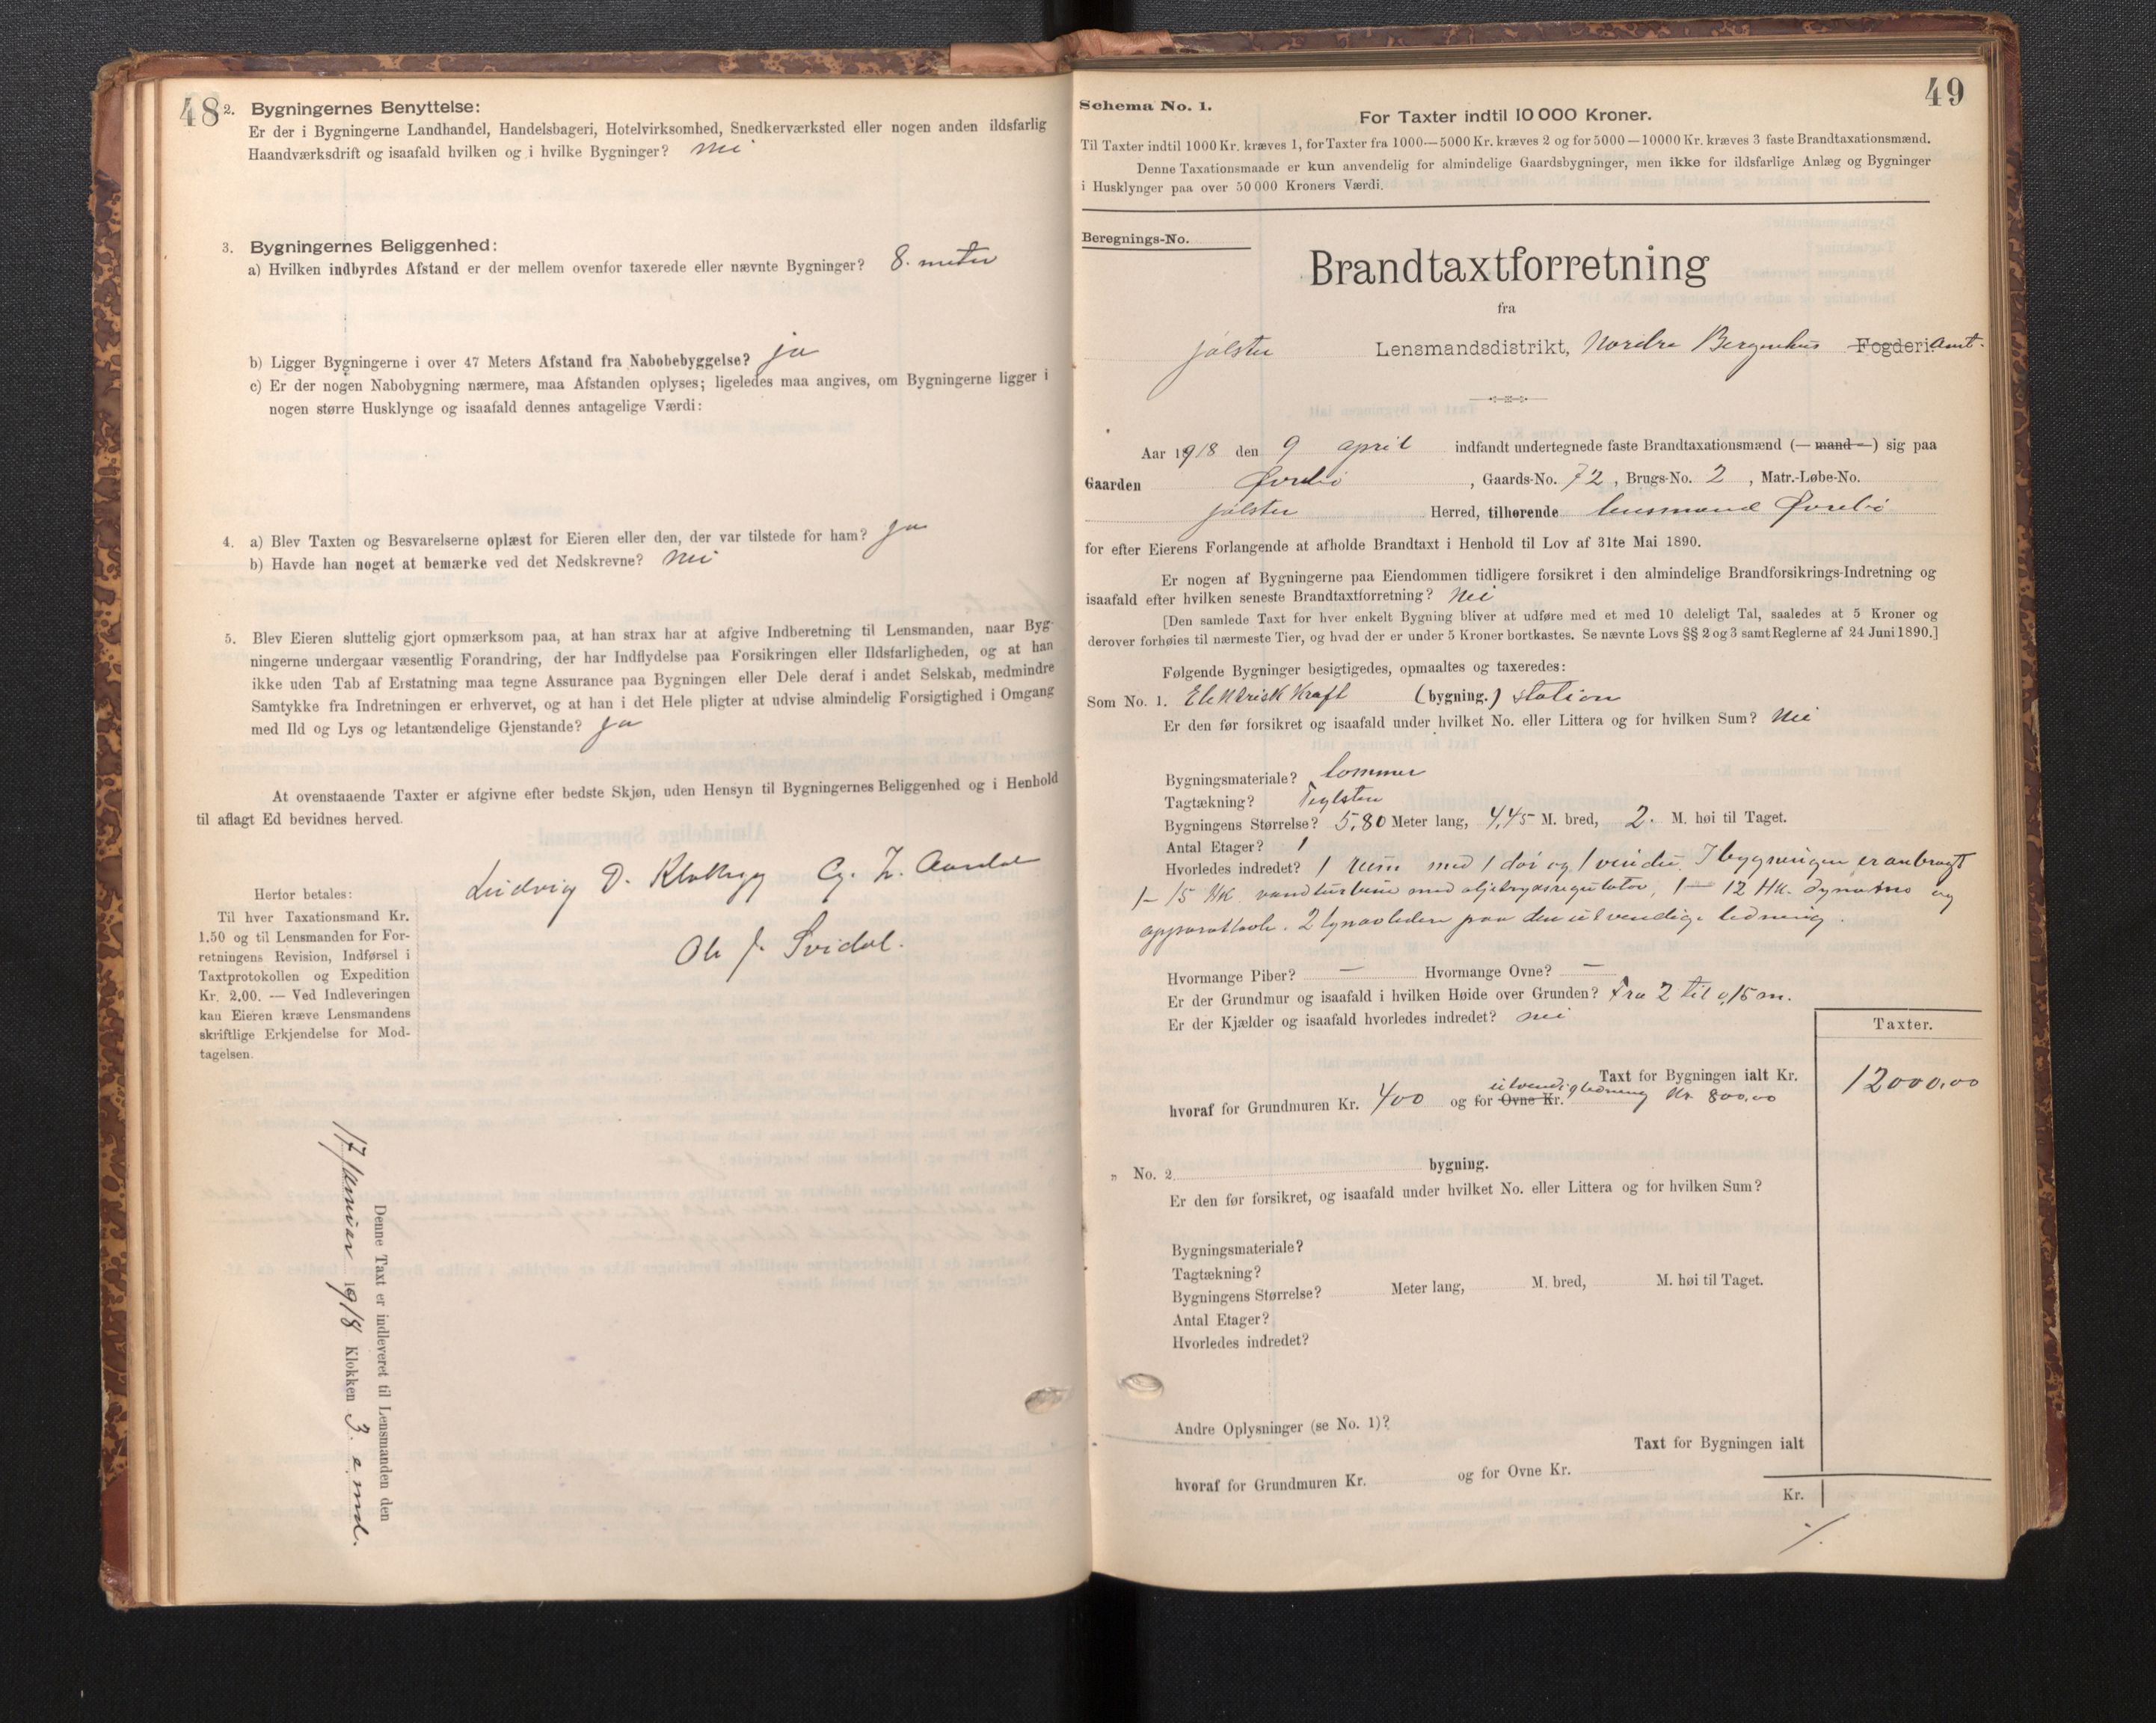 48
2. Bygningernes Benyttelse:
Er der i Bygningerne Landhandel, Handelsbageri, Hotelvirksomhed, Snedkerværksted eller nogen anden ildsfarlig
Haandværksdrift og isaafald hvilken og i hvilke Bygninger? nei
3. Bygningernes Beliggenhed:
a) Hvilken indbyrdes Afstand er der mellem ovenfor taxerede eller nævnte Bygninger? 8. meter
b) Ligger Bygningerne i over 47 Meters Afstand fra Nabobebyggelse? ja
c) Er der nogen Nabobygning nærmere, maa Afstanden oplyses; ligeledes maa angives, om Bygningerne ligger i
nogen større Husklynge og isaafald dennes antagelige Værdi:
4. a) Blev Taxten og Besvarelserne oplæst for Eieren eller den, der var tilstede for ham? ja
b) Havde han noget at bemærke ved det Nedskrevne? nei
5. Blev Eieren sluttelig gjort opmærksom paa, at han strax har at afgive Indberetning til Lensmanden, naar Byg-
ningerne undergaar væsentlig Forandring, der har Indflydelse paa Forsikringen eller Ildsfarligheden, og at han
ikke uden Tab af Erstatning maa tegne Assurance paa Bygningen eller Dele deraf i andet Selskab, medmindre
Samtykke fra Indretningen er erhvervet, og at han i det Hele pligter at udvise almindelig Forsigtighed i Omgang
med Ild og Lys og letantændelige Gjenstande? ja
At ovenstaaende Taxter er afgivne efter bedste Skjøn, uden Hensyn til Bygningernes Beliggenhed og i Henhold
til aflagt Ed bevidnes herved.
Ludvig D. Klakegg
Ole J. Svidal.
Herfor betales:
Til hver Taxationsmand Kr.
1.50 og til Lensmanden for For-
retningens Revision, Indførsel i
Taxtprotokollen og Expedition
Kr. 2.00. — Ved Indleveringen
kan Eieren kræve Lensmandens
skriftlige Erkjendelse for Mod-
tagelsen.
Denne Taxt er indleveret til Lensmanden den
17 januar 1918 Klokken 3. e md.
49
Schema No. 1.
For Taxter indtil 10 000 Kroner.
Til Taxter indtil 1000 Kr. kræves 1, for Taxter fra 1000—5000 Kr. kræves 2 og for 5000—10000 Kr. kræves 3 faste Brandtaxationsmænd.
Denne Taxationsmaade er kun anvendelig for almindelige Gaardsbygninger, men ikke for ildsfarlige Anlæg og Bygninger
i Husklynger paa over 50 000 Kroners Værdi.
Beregnings-No.
Brandtaxtforretning
fra
Jølster Lensmandsdistrikt, Nordre Bergenhus Fogderi Amt.
Aar 1918 den 9 april indfandt undertegnede faste Brandtaxationsmænd (— mand —) sig paa
Gaarden Øvrebø, Gaards-No. 72, Brugs-No. 2, Matr.-Løbe-No.
Jølster Herred, tilhørende lensmand Øvrebø
for efter Eierens Forlangende at afholde Brandtaxt i Henhold til Lov af 31te Mai 1890.
Er nogen af Bygningerne paa Eiendommen tidligere forsikret i den almindelige Brandforsikrings-Indretning og
isaafald efter hvilken seneste Brandtaxtforretning? Nei
[Den samlede Taxt for hver enkelt Bygning bliver at udføre med et med 10 deleligt Tal, saaledes at 5 Kroner og
derover forhøies til nærmeste Tier, og hvad der er under 5 Kroner bortkastes. Se nævnte Lovs §§ 2 og 3 samt Reglerne af 24 Juni 1890.]
Følgende Bygninger besigtigedes, opmaaltes og taxeredes:
Som No. 1. Elektrisk Kraft (bygning.) station
Er den før forsikret og isaafald under hvilket No. eller Littera og for hvilken Sum? Nei
Bygningsmateriale? tømmer
Tagtækning? Teglsten
Bygningens Størrelse? 5,80 Meter lang, 4,45 M. bred, 2. M. høi til Taget.
Antal Etager? 1
Hvorledes indredet? 1 rum med 1 dør og 1 vindu. I bygningen er anbragt
1 – 15 HK vandturbine med oljetryksregulator, 1 — 12 HK. dynamo og
apparattavle. 2 lynavledere paa den utvendige ledning.
Hvormange Piber? — Hvormange Ovne? —
Er der Grundmur og isaafald i hvilken Høide over Grunden? Fra 2 til 0,15 m.
Er der Kjælder og isaafald hvorledes indredet? nei
Taxter.
Taxt for Bygningen ialt Kr. 12000,00
hvoraf for Grundmuren Kr. 400 og for Ovne Kr. utvendig ledning Kr 800,00
„ No. 2 bygning.
Er den før forsikret, og isaafald under hvilket No. eller Littera og for hvilken Sum?
Bygningsmateriale?
Tagtækning?
Bygningens Størrelse? Meter lang, M. bred, M. høi til Taget.
Antal Etager?
Hvorledes indredet?
Andre Oplysninger (se No. 1)?
Taxt for Bygningen ialt
hvoraf for Grundmuren Kr. og for Ovne Kr.
Kr.